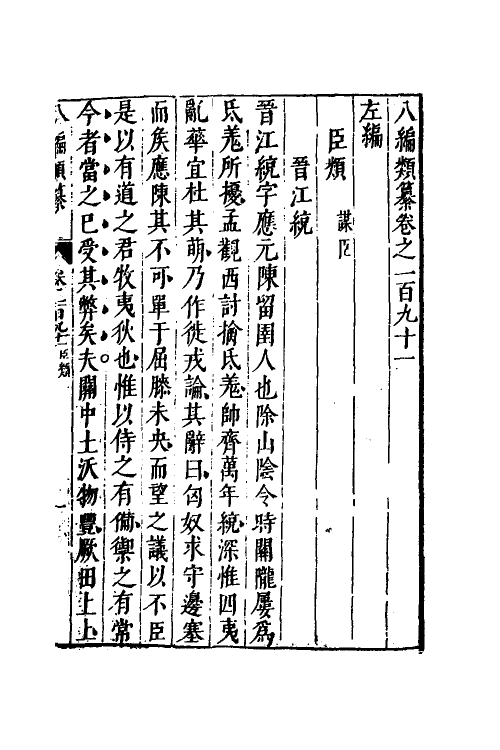 八編類纂卷之一百九十一
左編
臣類 謀臣
晉江統
晉江統字應元陳留圉人也除山陰令時關隴屢爲
氐羗所擾孟觀西討擒氐羗帥齊萬年統深惟四夷
亂華宜杜其萌乃作徙戎論其辭曰匈奴求守邊塞
而矦應陳其不可單于屈膝未央而望之議以不臣
是以有道之君牧夷狄也惟以待之有備禦之有常
今者當之已受其弊矣夫關中土沃物豐厥田上上
八編類纂 卷之一百九十一臣類 一